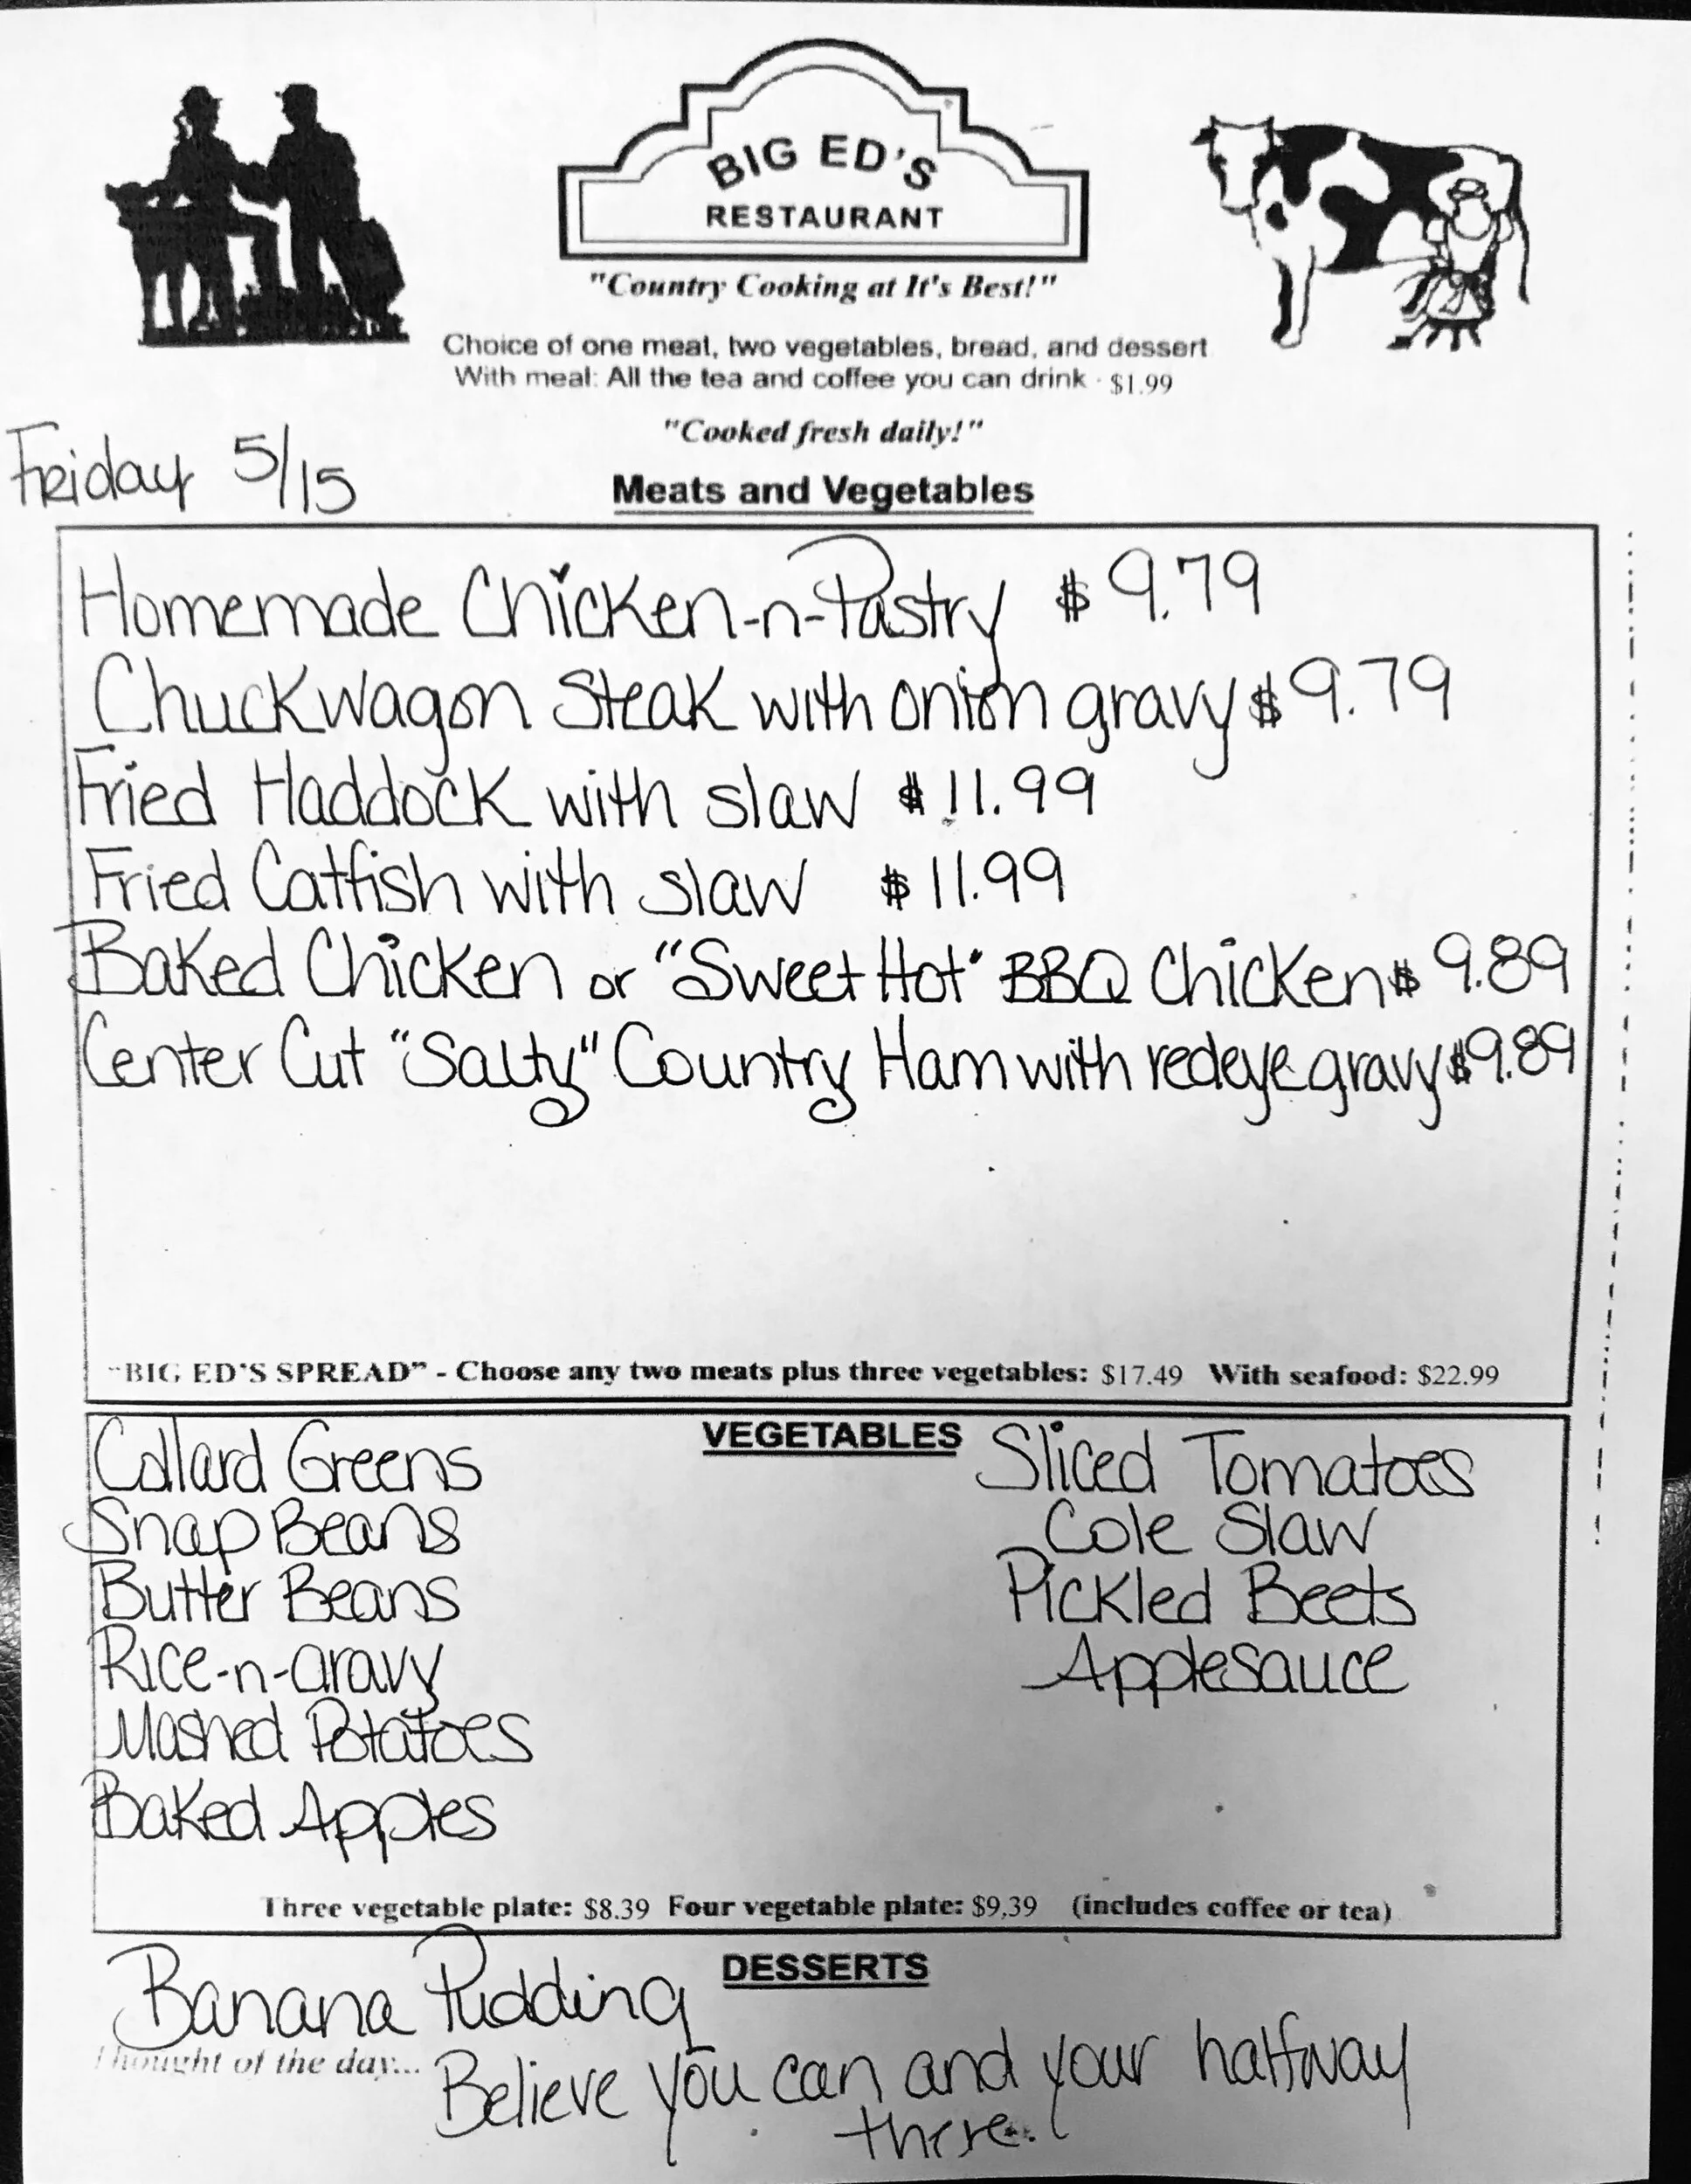 BIG ED'S
RESTAURANT
"Country Cooking at It's Best!"
Choice of one meat, two vegetables, bread, and dessert
With meal: All the tea and coffee you can drink - $1.99
"Cooked fresh daily!"
Friday 5/15
Meats and Vegetables
Homemade Chicken-n-Pastry $9.79
Chuckwagon Steak with onion gravy $9.79
Fried Haddock with slaw $11.99
Fried Catfish with slaw $11.99
Baked Chicken or "Sweet Hot" BBQ Chicken $9.89
Center Cut "Salty" Country Ham with redeye gravy $9.89
"BIG ED'S SPREAD" - Choose any two meats plus three vegetables: $17.49 With seafood: $22.99
VEGETABLES
Collard Greens
Snap Beans
Butter Beans
Rice-n-gravy
Mashed Potatoes
Baked Apples
Sliced Tomatoes
Cole Slaw
Pickled Beets
Applesauce
Three vegetable plate: $8.39 Four vegetable plate: $9.39 (includes coffee or tea)
DESSERTS
Banana Pudding
Thought of the day... Believe you can and your halfway
there.